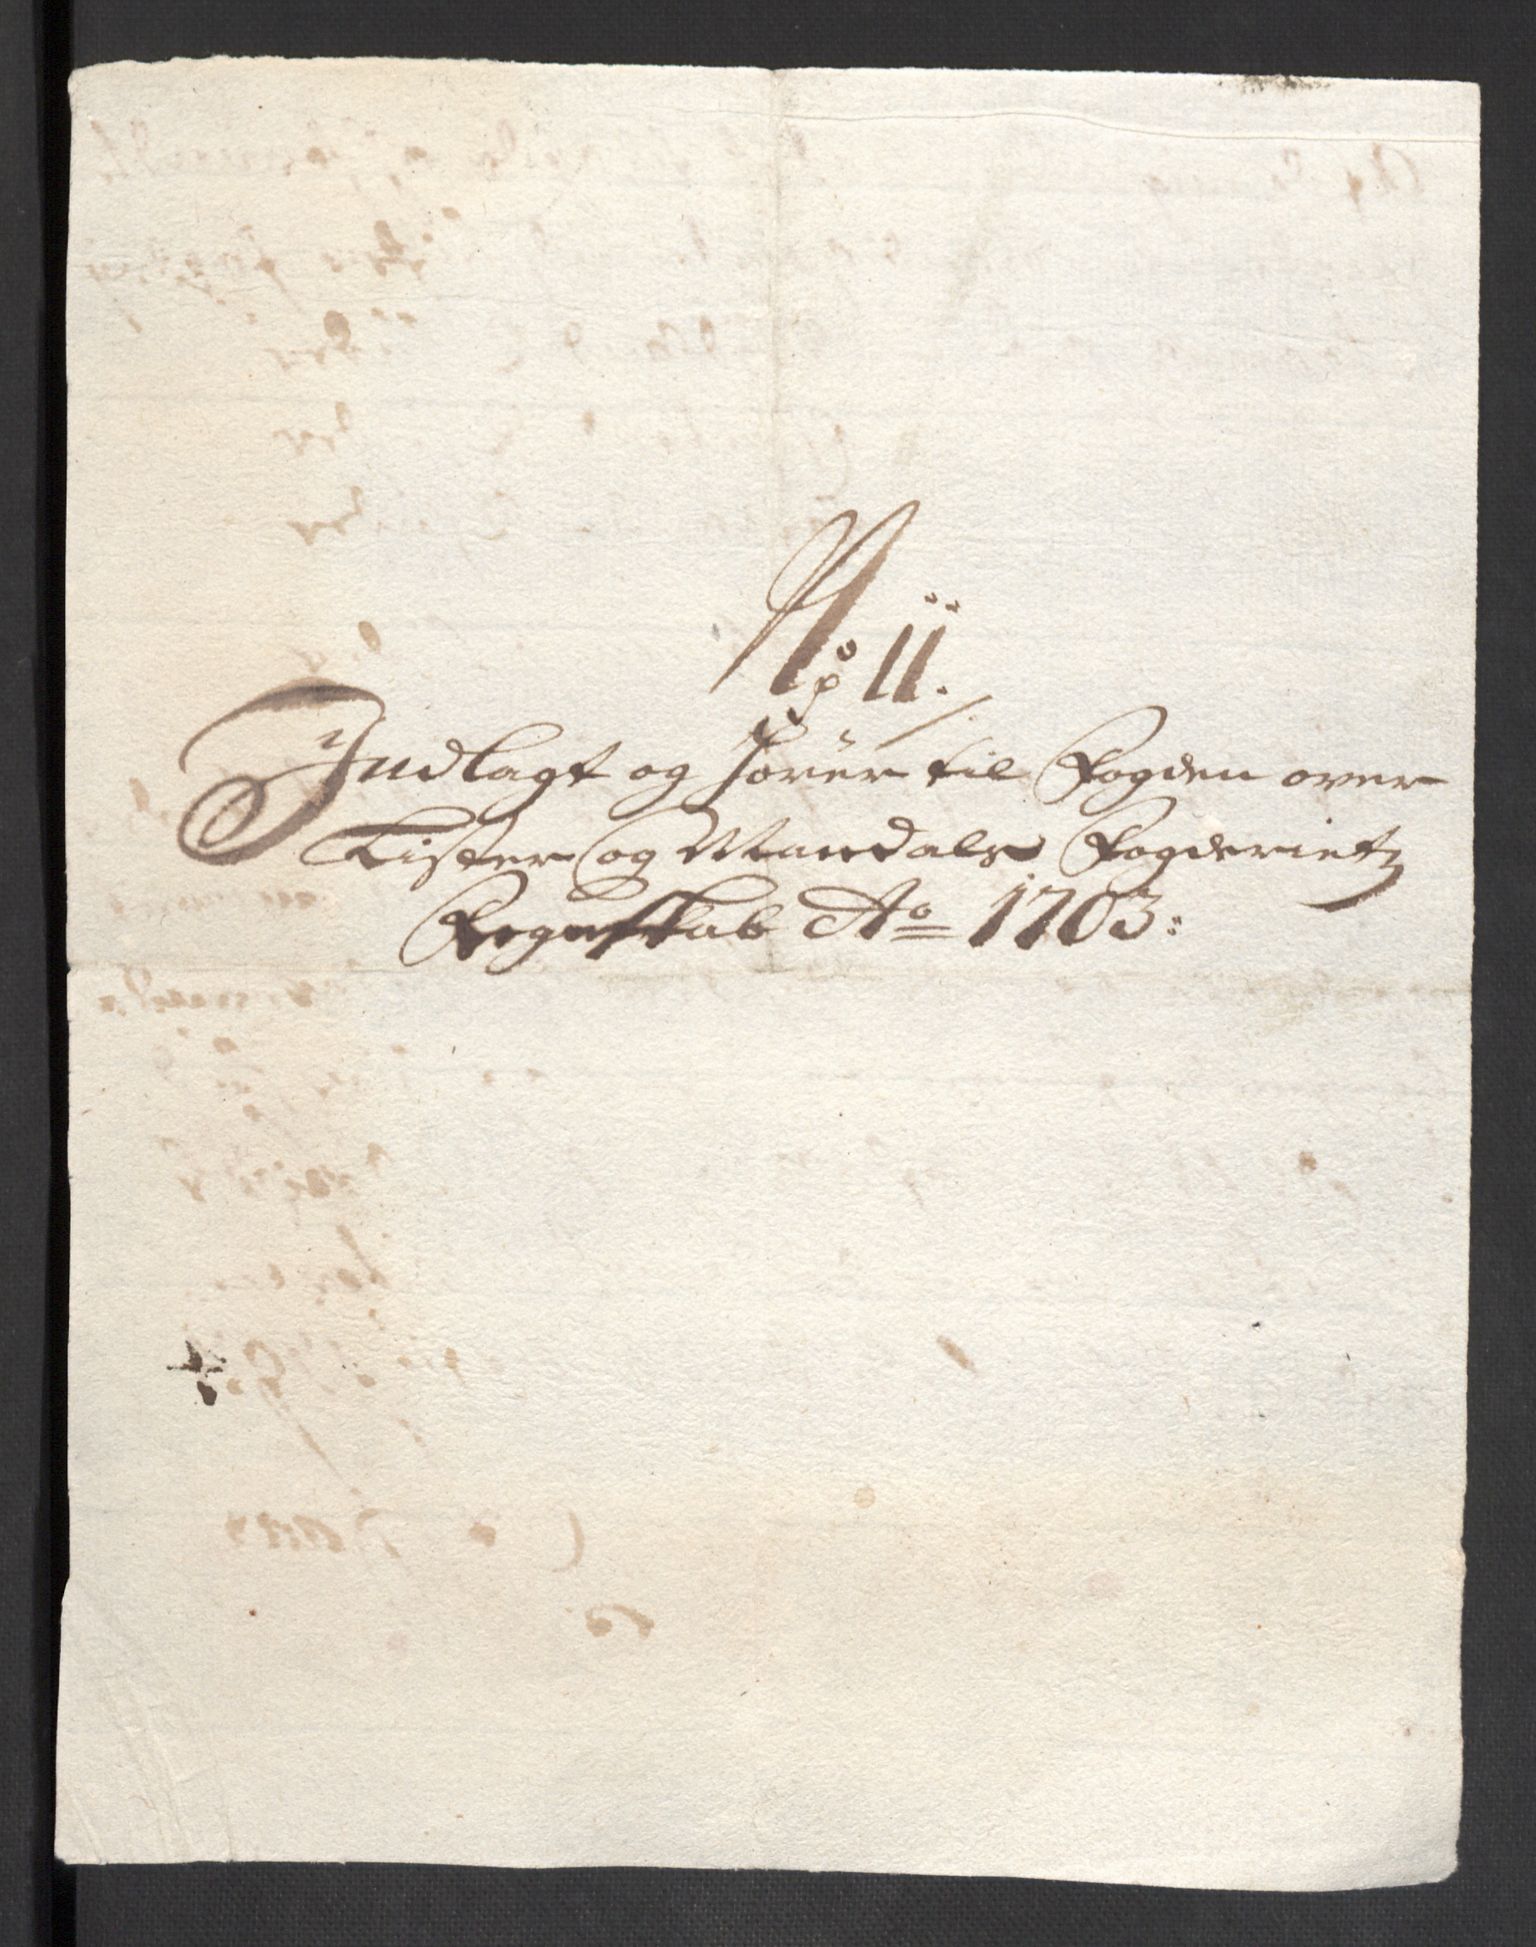 No 11.
Indlagt og hører til Fogden over
Lister og Mandals Fogderietz
Regnskab Ao 1703: